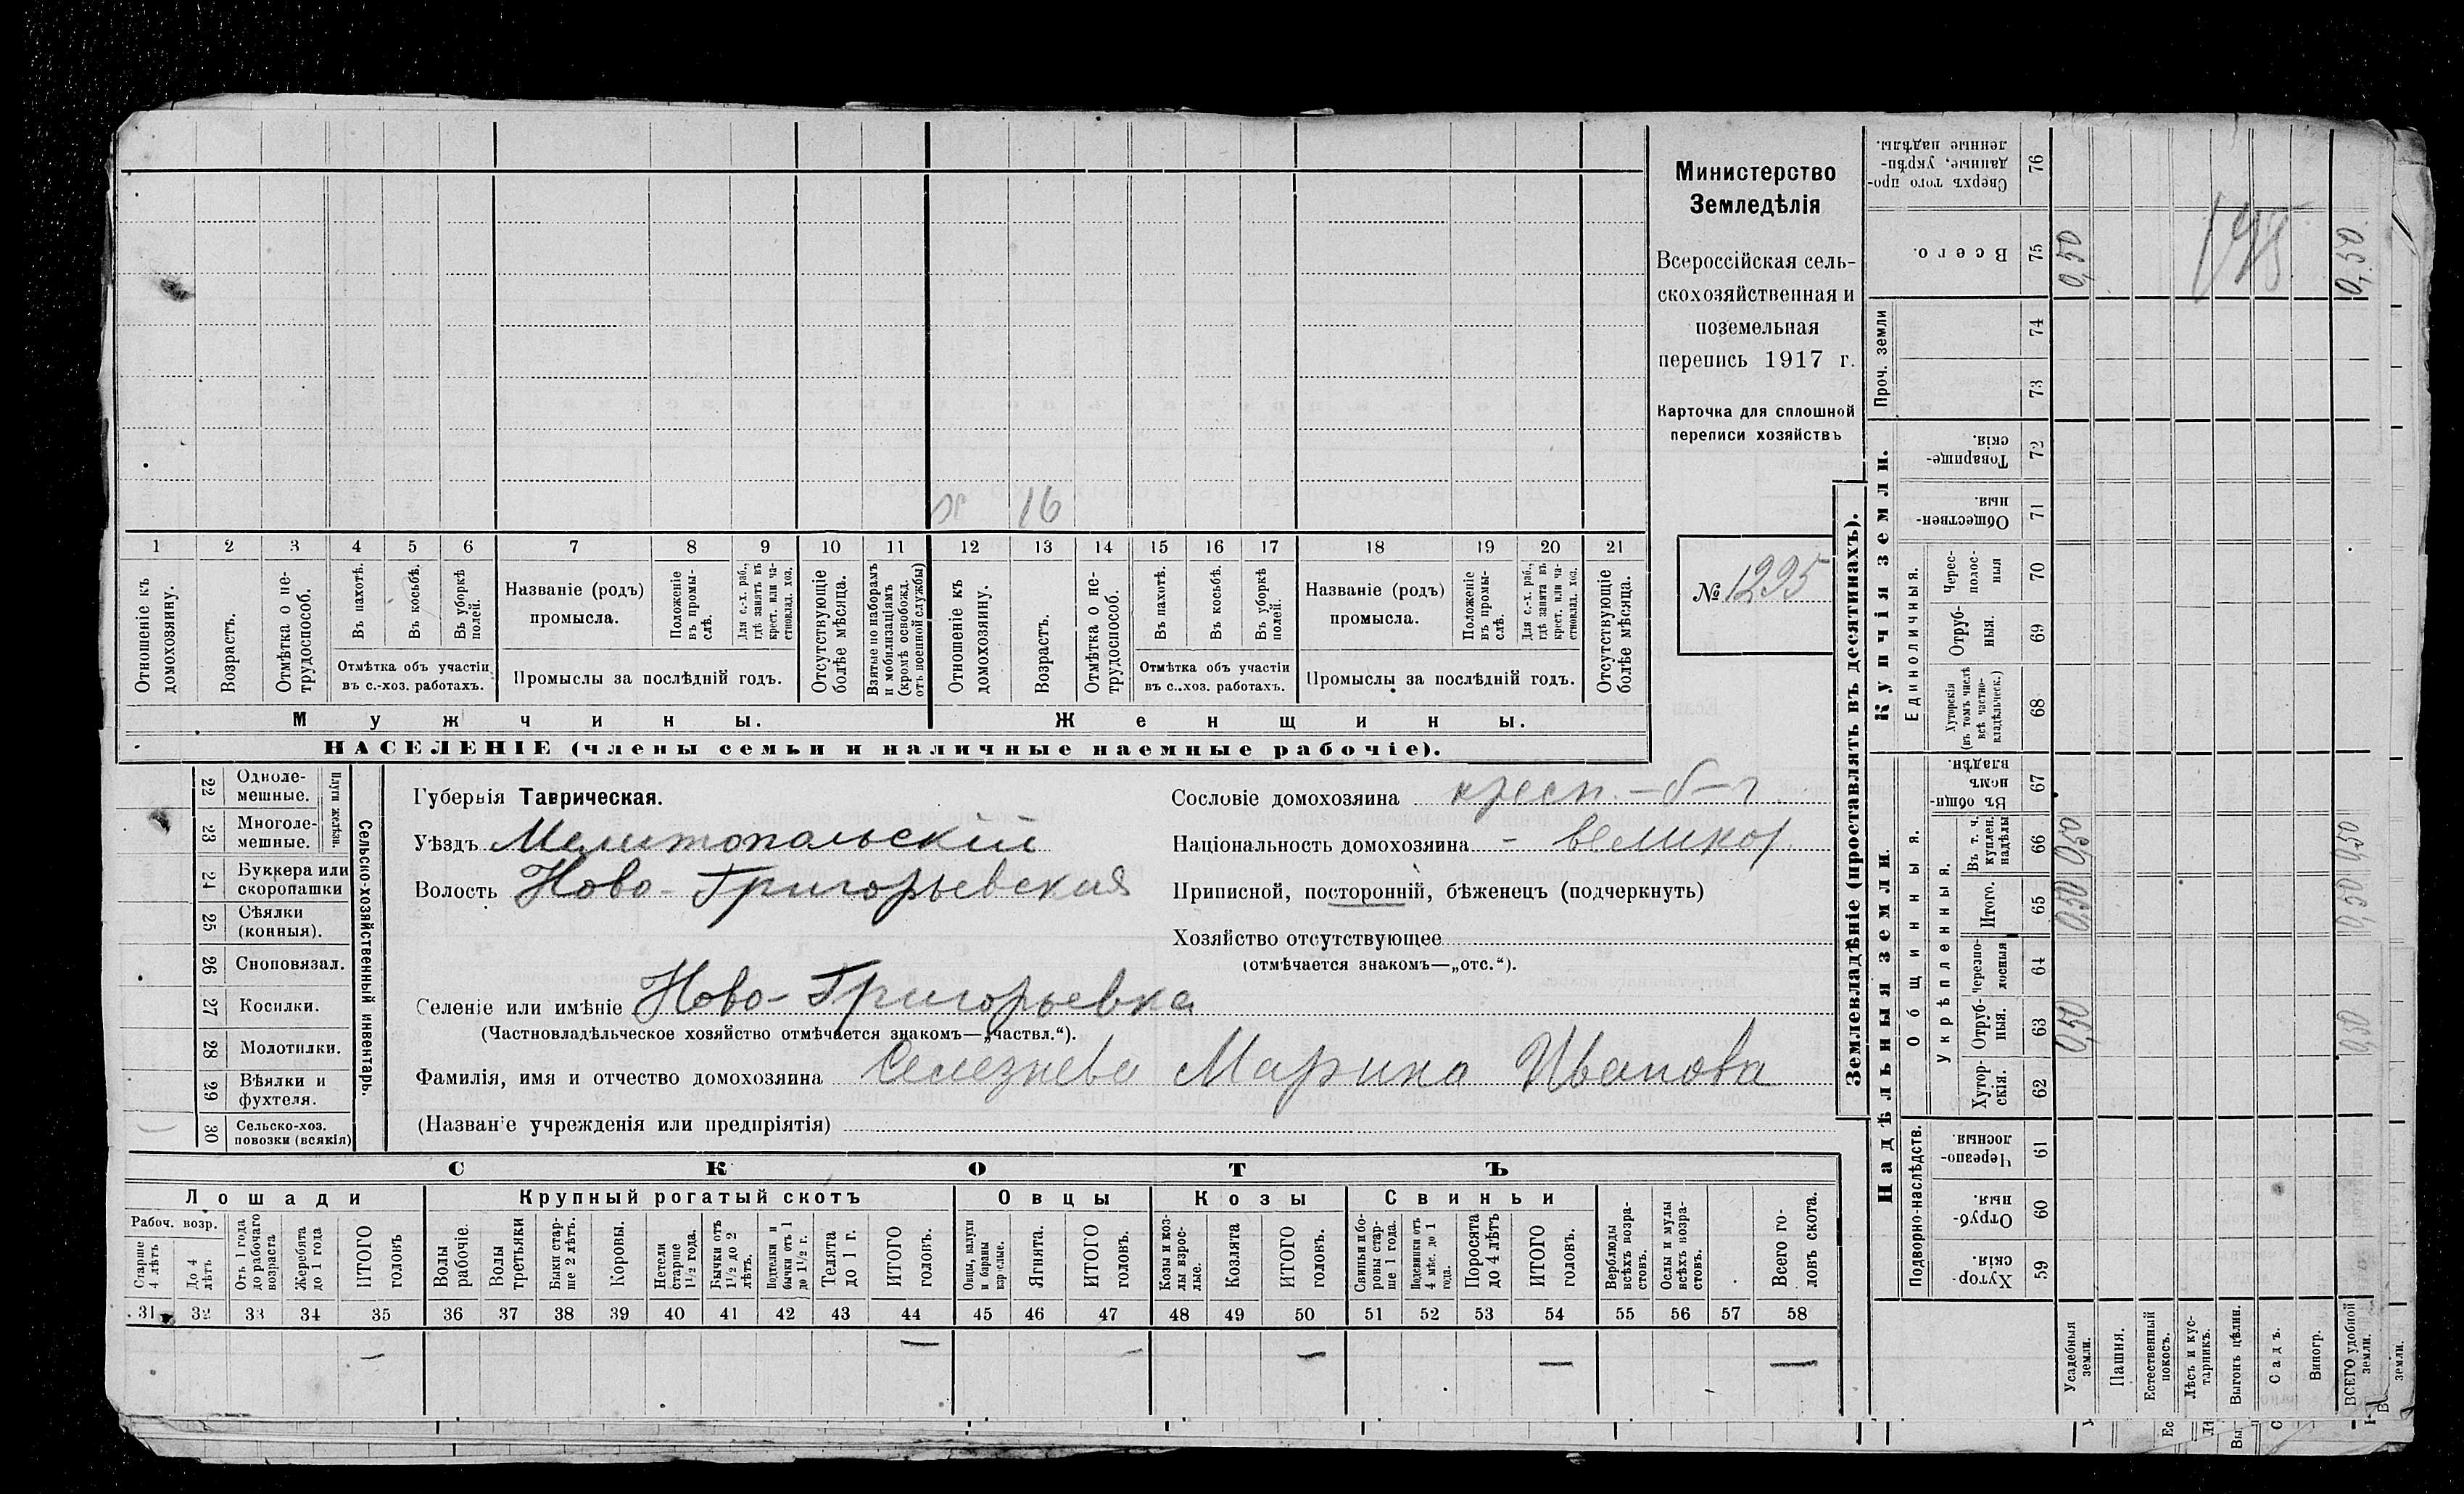 ж 16
1 2 3 4 5 6 7 8 9 10 11 12 13 14 15 16 17 18 19 20 21
Отношеніе къ домохозяину.
Возрастъ.
Отмѣтка о нетрудоспособ.
Въ пахотѣ.
Въ косьбѣ.
Въ уборкѣ полей.
Отмѣтка объ участіи
въ с.-хоз. работахъ.
Названіе (родъ)
промысла.
Положеніе въ промыслѣ.
Для с.-х. раб., гдѣ занятъ въ крест. или частновлад. хоз.
Промыслы за послѣдній годъ.
Отсутствующіе болѣе мѣсяца.
Взятые по наборамъ и мобилизаціямъ (кромѣ освобожд. отъ военной службы)
Отношеніе къ домохозяину.
Возрастъ.
Отмѣтка о нетрудоспособ.
Въ пахотѣ.
Въ косьбѣ.
Въ уборкѣ полей.
Отмѣтка объ участіи
въ с.-хоз. работахъ.
Названіе (родъ)
промысла.
Положеніе въ промыслѣ.
Для с.-х. раб., гдѣ занята въ крест. или частновлад. хоз.
Промыслы за послѣдній годъ.
Отсутствующіе болѣе мѣсяца.
Мужчины.
Женщины.
НАСЕЛЕНІЕ (члены семьи и наличные наемные рабочіе).
Министерство
Земледѣлія
Всероссійская сель-
скохозяйственная и
поземельная
перепись 1917 г.
Карточка для сплошной
переписи хозяйствъ
№ 1225
22 Одноле-
мешные.
23 Многоле-
мешные.
Плуги желѣзн.
24 Буккера или
скоропашки
25 Сѣялки
(конныя).
26 Сноповязал.
27 Косилки.
28 Молотилки.
29 Вѣялки и
фухтеля.
30 Сельско-хоз.
повозки (всякія)
Сельско-хозяйственный инвентарь.
Губернія Таврическая.
Уѣздъ Мелитопольскій
Волость Ново-Григорьевская
Селеніе или имѣніе Ново-Григорьевка
(Частновладѣльческое хозяйство отмѣчается знакомъ—„частвл.“).
Фамилія, имя и отчество домохозяина Селезнева Марина Иванова
(Названіе учрежденія или предпріятія)
Сословіе домохозяина кресн. -
Національность домохозяина - великор.
Приписной, посторонній, бѣженецъ (подчеркнуть)
Хозяйство отсутствующее
(отмѣчается знакомъ—„отс.“).
СКОТЪ
Лошади
Крупный рогатый скотъ
Овцы
Козы
Свиньи
Рабоч. возр.
Старше 4 лѣтъ
До 4 лѣтъ
Отъ 1 года до рабочаго возраста
Жеребята до 1 года
ИТОГО головъ
Волы рабочіе.
Волы третьяки
Быки старше 2 лѣтъ.
Коровы.
Нетели старше 1 1/2 года.
Бычки отъ 1 1/2 до 2 лѣтъ.
Подтелки и бычки отъ 1 до 1 1/2 г.
Телята до 1 г.
ИТОГО головъ.
Овцы, валухи и бараны взрослые.
Ягнята.
ИТОГО головъ.
Козы и козлы взрослые.
Козлята
ИТОГО головъ.
Свиньи и боровы старше 1 года.
Подсвинки отъ 4 мѣс. до 1 года.
Поросята до 4 лѣтъ
ИТОГО головъ.
Верблюды всѣхъ возрастовъ.
Ослы и мулы всѣхъ возрастовъ.
Всего головъ скота.
31 32 33 34 35 36 37 38 39 40 41 42 43 44 45 46 47 48 49 50 51 52 53 54 55 56 57 58
— — — — — —
Землевладѣніе (проставлять въ десятинахъ).
Надѣльныя земли.
Купчія земли.
Проч. земли
Подворно-наслѣдств.
Общинныя.
Укрѣпленныя.
Единоличныя.
Сверхъ того проданные, укрѣпленные надѣлы. 76
Всего. 75 0,50 0,50
74
73
Товарищескія. 72
Общественныя. 71
Чересполосныя 70
Отрубныя. 69
Хуторскія (въ томъ числѣ всѣ частновладѣльческ.) 68
Въ общемъ владѣн. 67
Въ т. ч. куплен. надѣлы 66 0,50 0,50
Итого. 65 0,50 0,50
черезполосныя 64
Отрубныя. 63 0,50 0,50
Хуторскія. 62
Черезполосныя. 61
Отрубныя. 60
Хуторскія. 59
Усадебныя земли.
Пашня.
Естественный покосъ.
Лѣсъ и кустарникъ.
Выгонъ цѣлин.
Садъ.
Виногр.
ВСЕГО удобной земли.
земли.